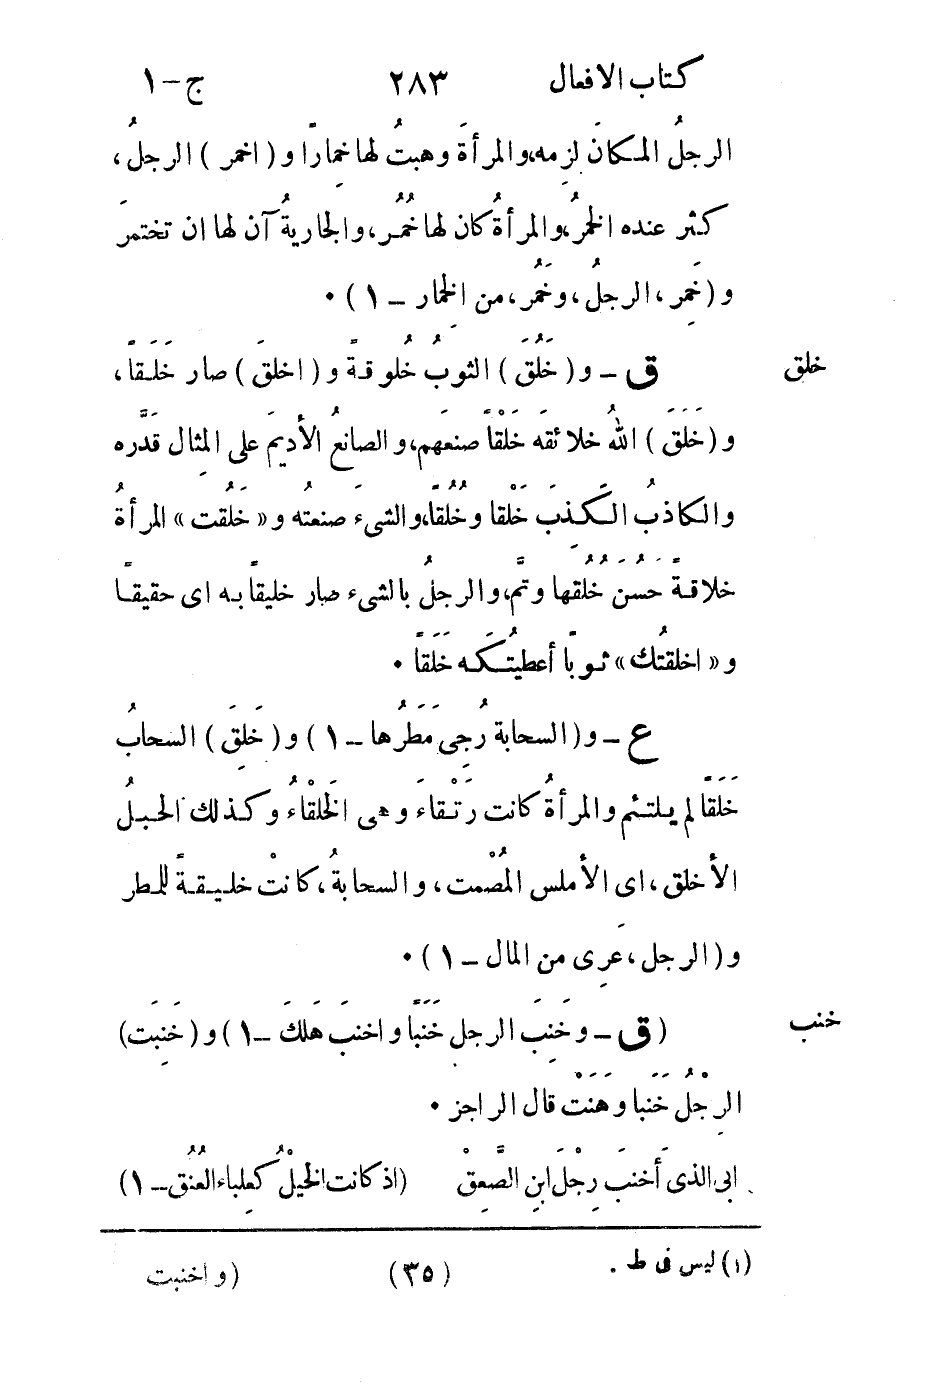 كتاب الافعال ٢٨٣ ج-١
الرجلُ المكانَ لزمه، والمرأةَ وهبتُ لها خمارًا و(اخمر) الرجلُ،
كثر عنده الخمرُ، والمرأةُ كان لها خُمُر، والجاريةُ آن لها ان تختمرَ
و(خَمِر، الرجلُ، وخَمُر، من الخِمار ــ ١)٠
خلق ق ــ و(خَلُقَ) الثوبُ خُلوقةً و(اخلقَ) صار خَلَقاً،
و(خَلَقَ) اللهُ خلائقه خَلْقاً صنعَهم، والصانعُ الأديمَ على المِثال قدَّره
والكاذبُ الكَذِبَ خَلْقا وخُلُقاً، والشىءَ صنعتُه و«خَلُقت» المرأةُ
خلاقةً حَسُنَ خُلُقها وتمّ، والرجلُ بالشىء صار خليقاً به اى حقيقاً
و«اخلقتُك» ثوبًا أعطيتُكَه خَلَقاً٠
ع ــ و(السحابة رُجِىَ مَطَرُها ــ ١) و(خَلِقَ) السحابُ
خَلَقاً لم يلتئم والمرأةُ كانت رَتْقاءَ وهى الخَلْقاءُ وكذلك الحبلُ
الأخلق، اى الأملس المُصْمت، والسحابةُ، كانتْ خليقةً للمطر
و(الرجل، عَرِى من المال ــ ١)٠
خنب (ق ــ وخَنِبَ الرجل خَنَباً واخنبَ هَلكَ ــ ١) و(خَنِبَت)
الرِّجْلُ خَنَبا وهَنَتْ قال الراجز٠
ابى الذى أخنبَ رِجْلَ ابنِ الصَّعِقْ (اذ كانت الخيلُ كعِلباء العُنُق ــ ١)
(١) ليس فى ط .
(٣٥) (واخنبت